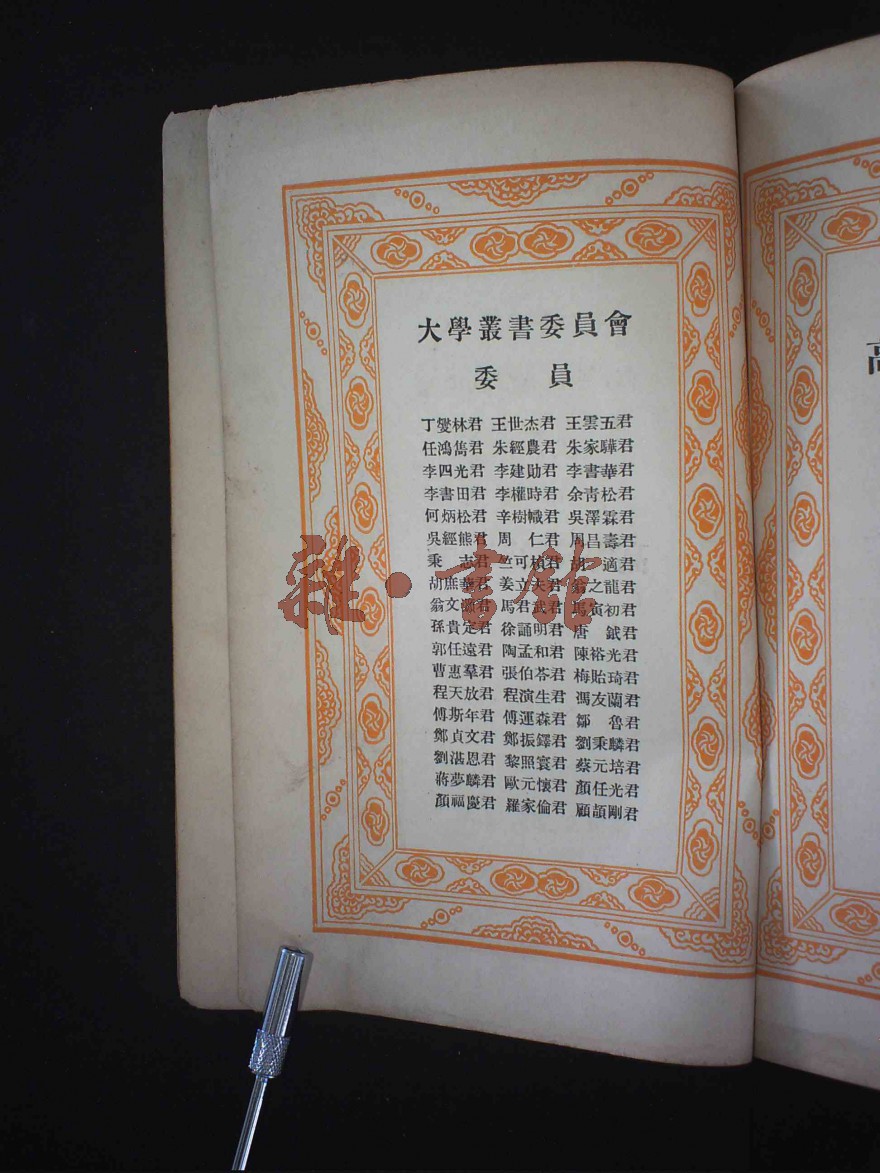 大學叢書委員會
委 員
丁燮林君 王世杰君 王雲五君
任鴻雋君 朱經農君 朱家驊君
李四光君 李建勛君 李書華君
李書田君 李權時君 余青松君
何炳松君 辛樹幟君 吳澤霖君
吳經熊君 周 仁君 周昌壽君
秉 志君 竺可楨君 胡 適君
胡庶華君 姜立夫君 翁之龍君
翁文灝君 馬君武君 馬寅初君
孫貴定君 徐誦明君 唐 鉞君
郭任遠君 陶孟和君 陳裕光君
曹惠羣君 張伯苓君 梅貽琦君
程天放君 程演生君 馮友蘭君
傅斯年君 傅運森君 鄒 魯君
鄭貞文君 鄭振鐸君 劉秉麟君
劉湛恩君 黎照寰君 蔡元培君
蔣夢麟君 歐元懷君 顏任光君
顏福慶君 羅家倫君 顧頡剛君
雜·書館